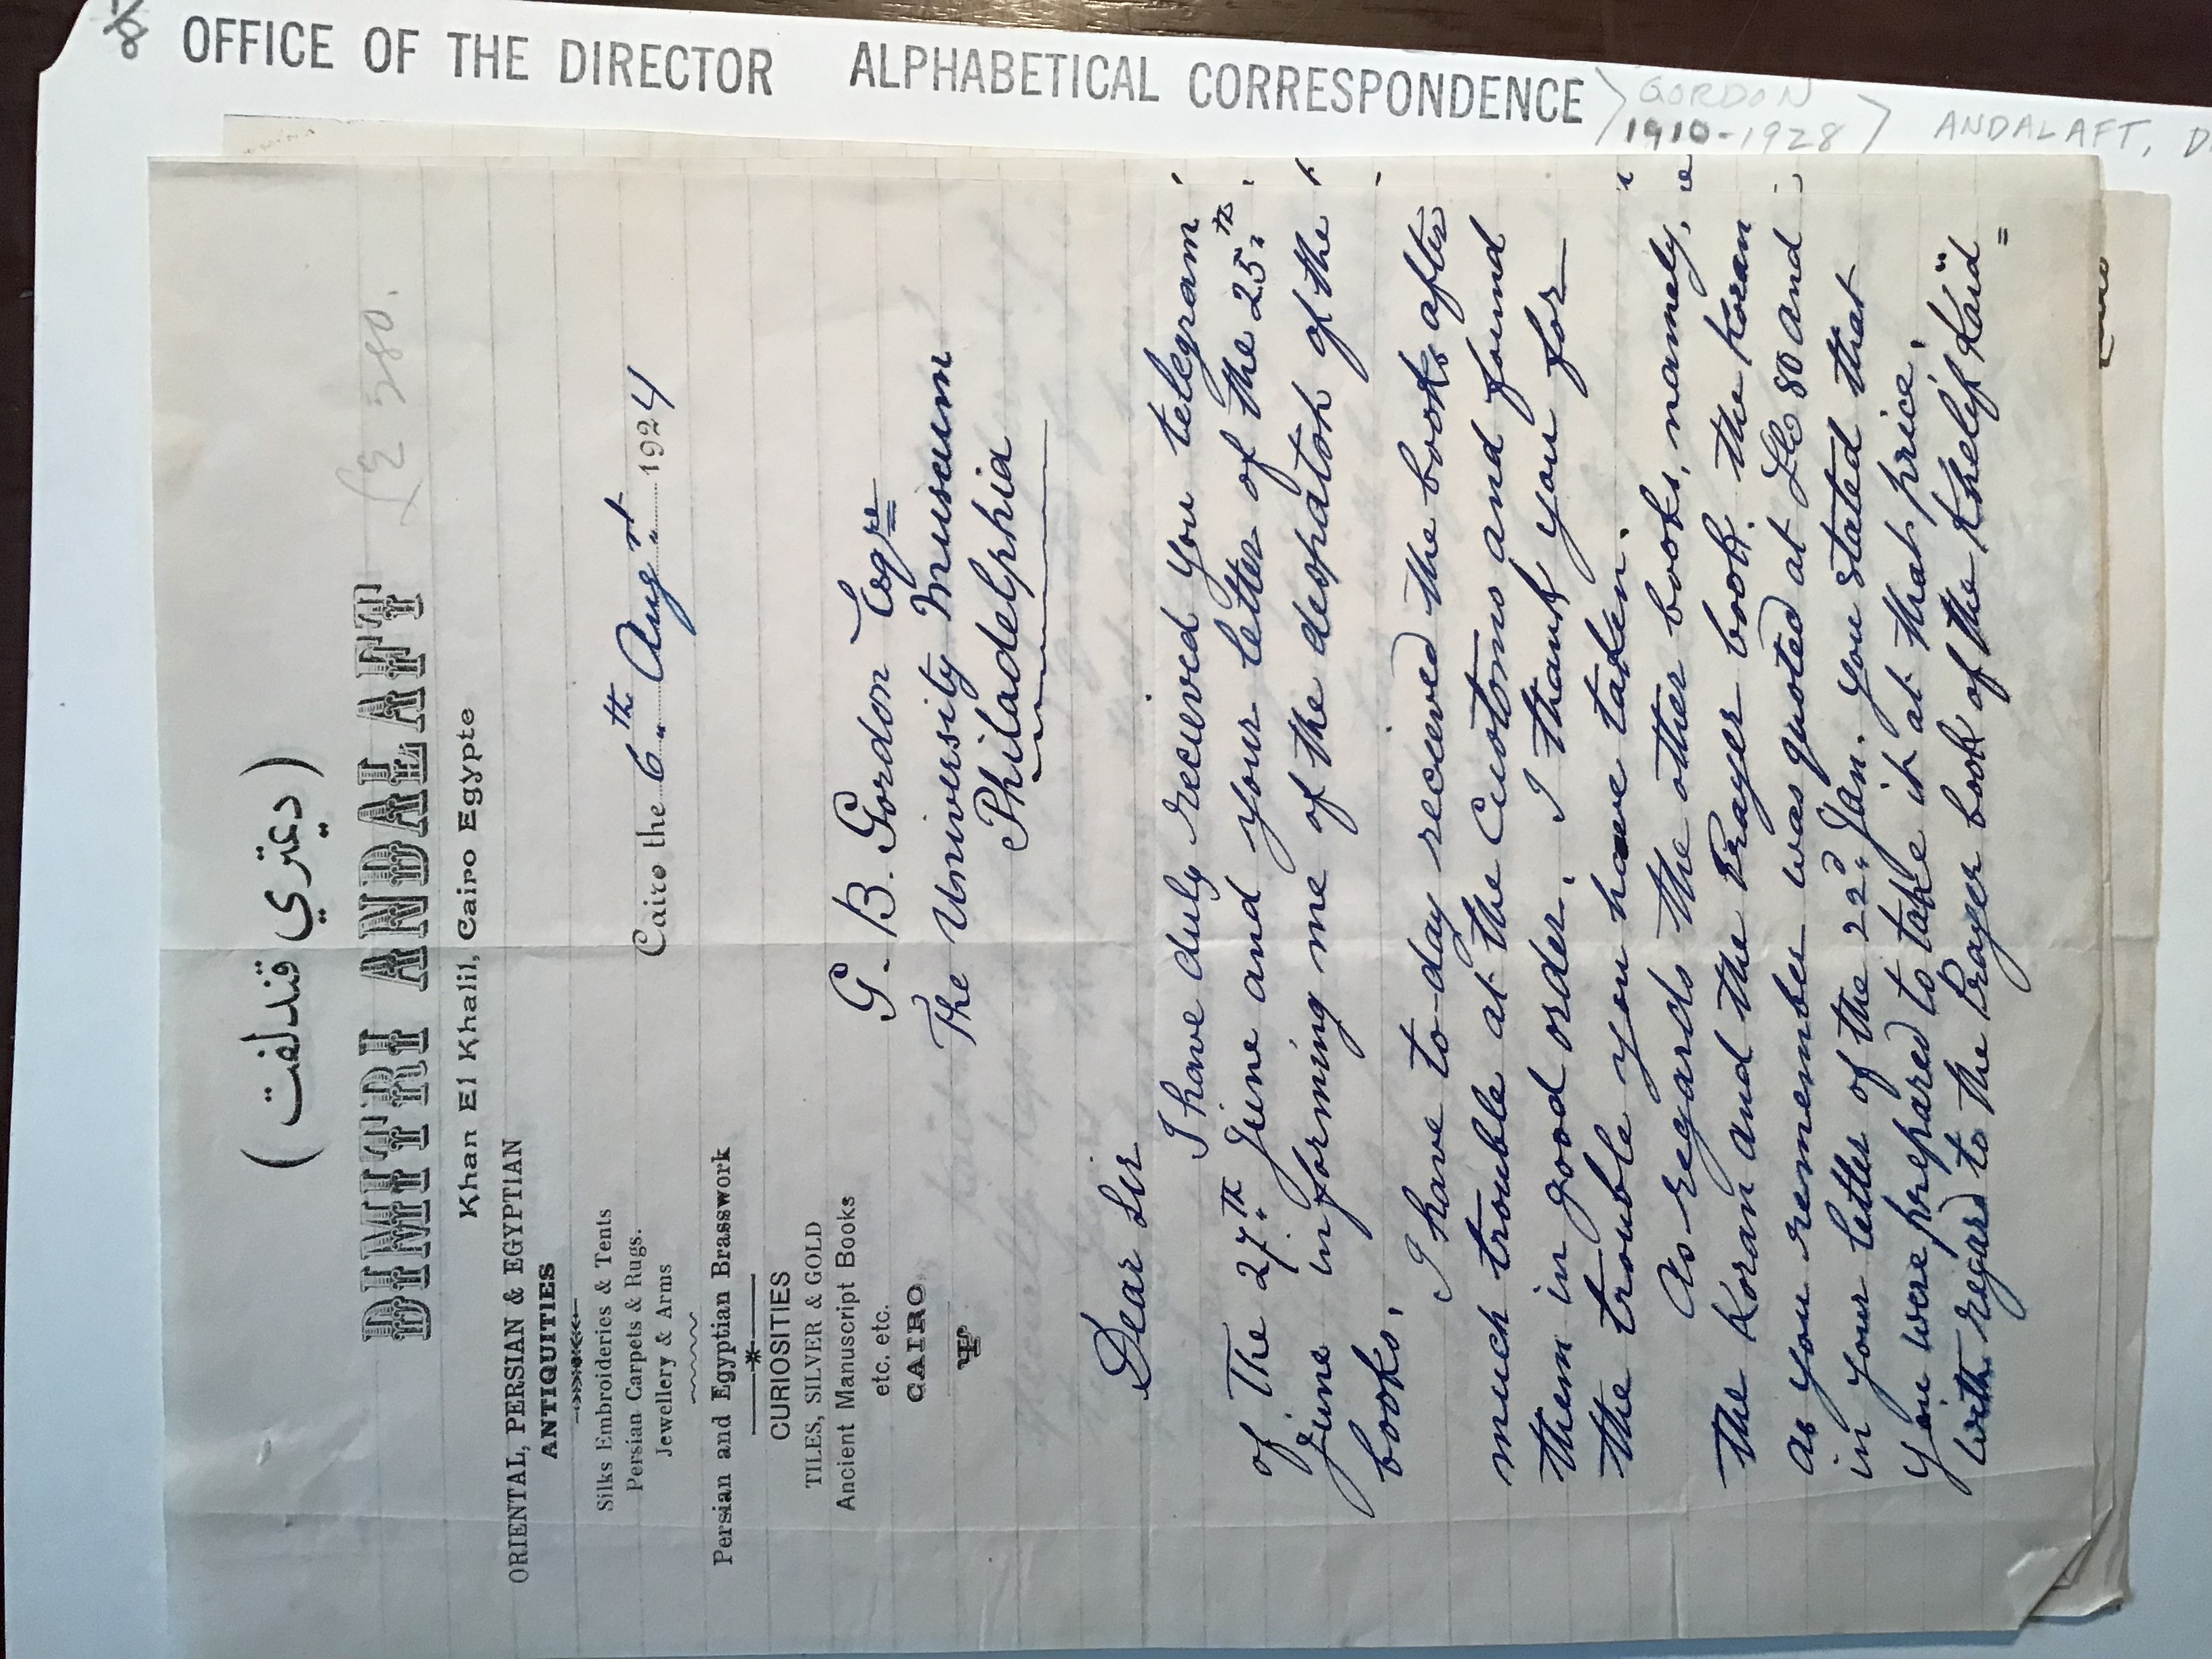 ( ديمتري قندلفت )
DIMITRI ANDALAFT
Khan El Khalil, Cairo Egypte
ORIENTAL, PERSIAN & EGYPTIAN
ANTIQUITIES
Silks Embroideries & Tents
Persian Carpets & Rugs.
Jewellery & Arms
Persian and Egyptian Brasswork
CURIOSITIES
TILES, SILVER & GOLD
Ancient Manuscript Books
etc. etc.
CAIRO
Cairo the 6th Augst 1924
G. B. Gordon Esqre
The University Museum
Philadelphia
Dear Sir
I have duly recieved you telegram
of The 27th June and your letter of the 25th
June informing me of the despatch of the
books.
I have to-day recieved the books after
much trouble at the Customs and found
them in good order. I thank you for
the trouble you have taken.
As regards the other books, namely,
the Koran and the Prayer book. the Koran
as you remember was quoted at 80 and
in your letter of the 22d Jan. you stated that
you were prepared to take it at that price.
with regard to the Prayer book of the Khelif Kaïd=
OFFICE OF THE DIRECTOR ALPHABETICAL CORRESPONDENCE
GORDON
1910-1928
ANDALAFT, D